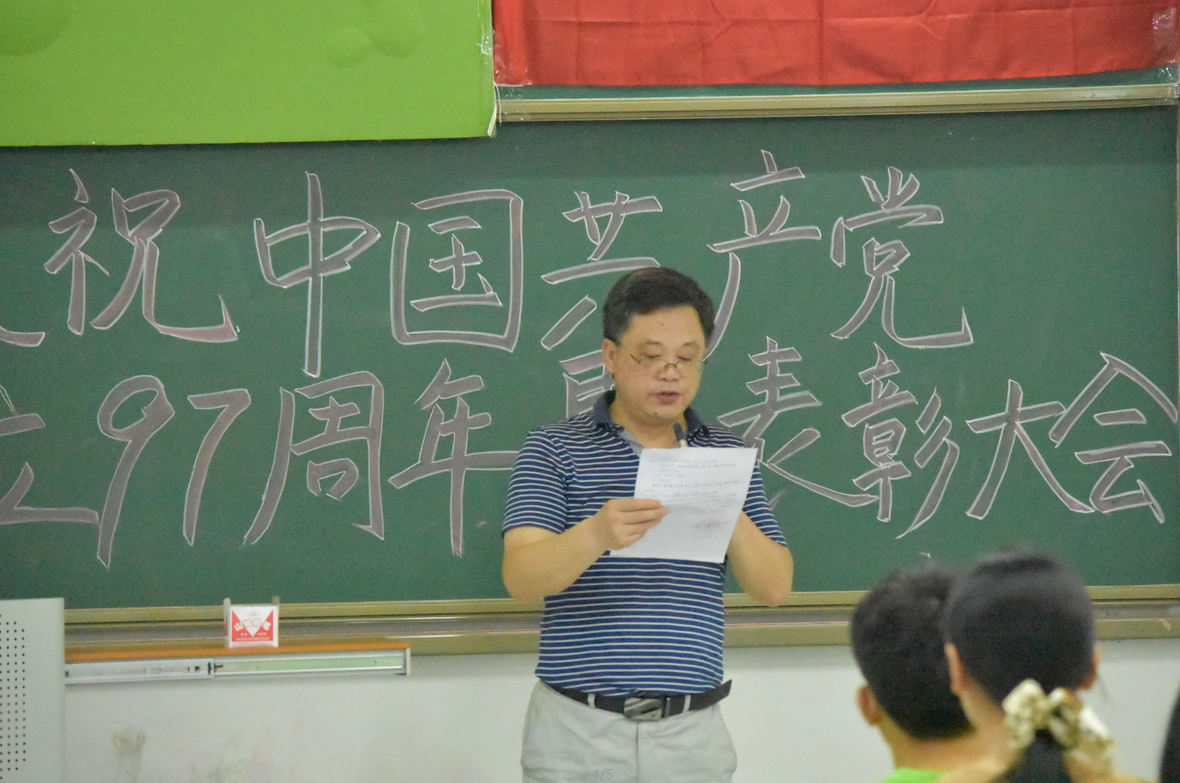 祝中国共产党
立97周年 表彰大会
4/5